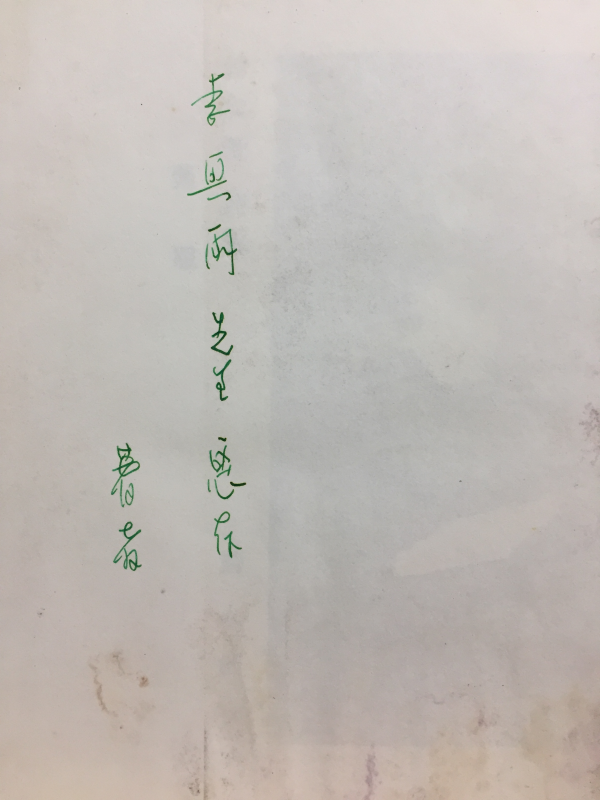 李興雨先生惠存
著者